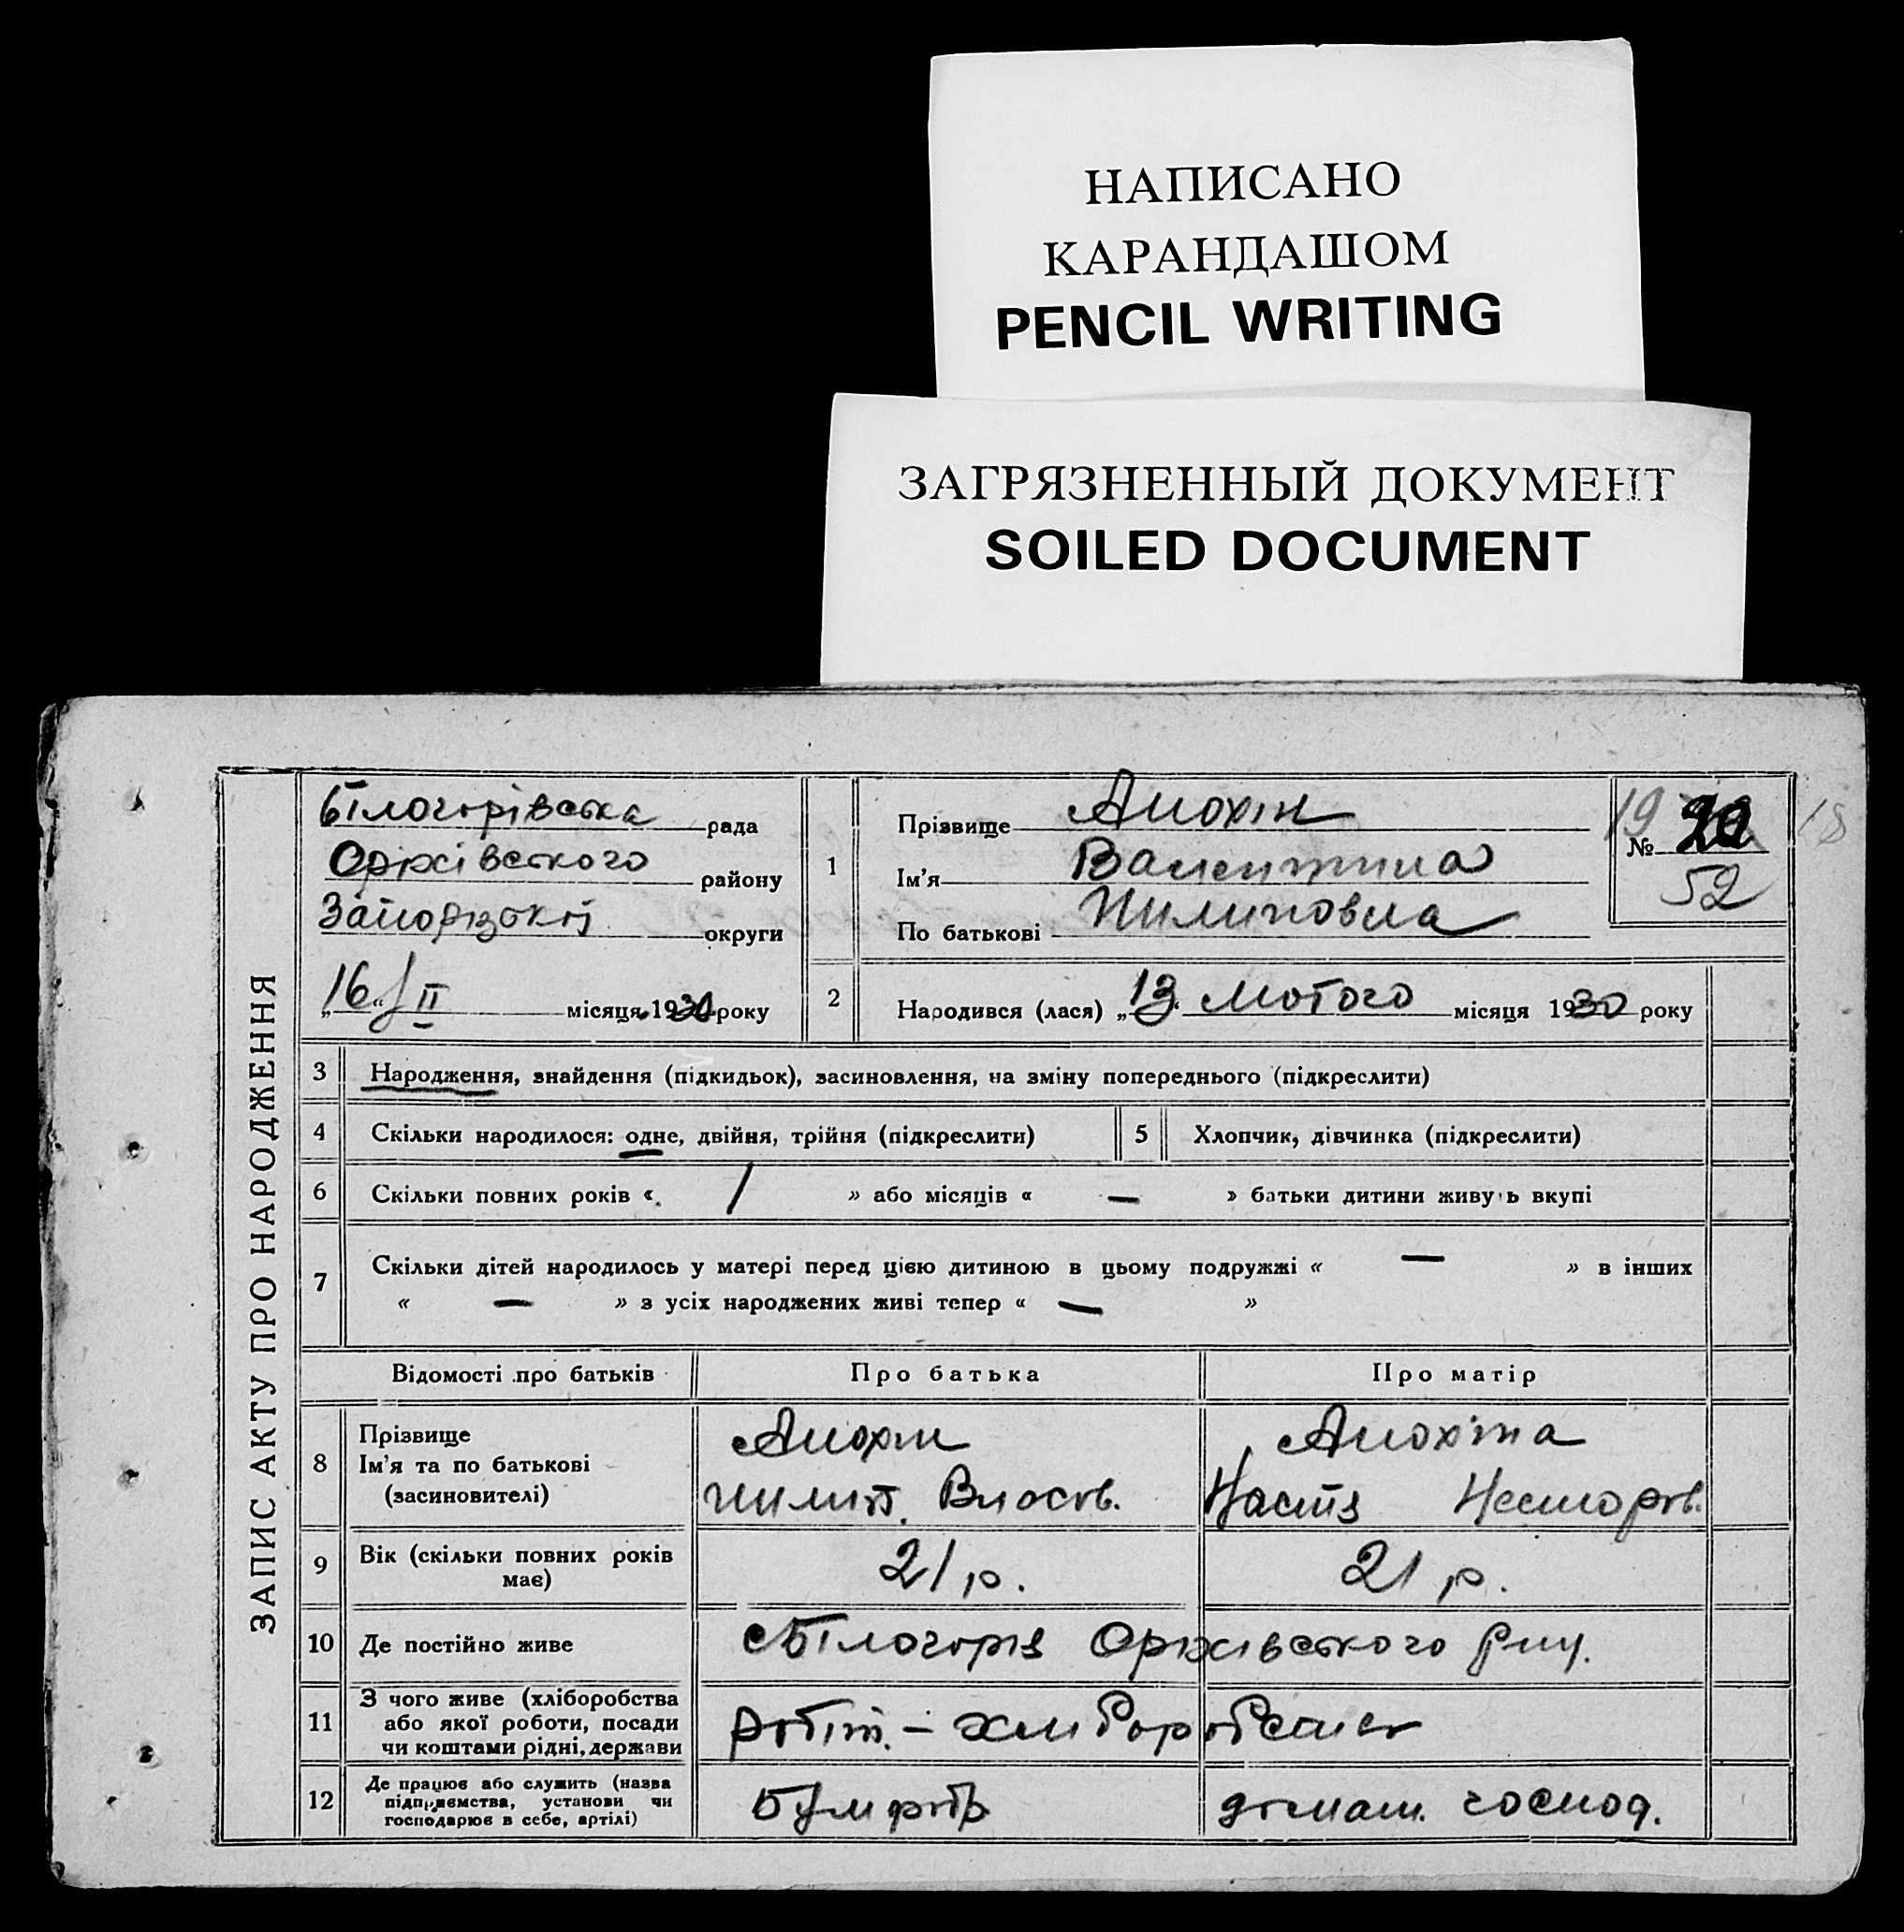 НАПИСАНО
КАРАНДАШОМ
PENCIL WRITING
ЗАГРЯЗНЕННЫЙ ДОКУМЕНТ
SOILED DOCUMENT
ЗАПИС АКТУ ПРО НАРОДЖЕННЯ
Білогорівська рада
Оріхівського району
Запорізької округи
„16“ II місяця 1930 року
1
Прізвище Анохін
Ім’я Валентина
По батькові Пилиповна
19 18
№ 20
52
2 Народився (лася) „13“ Лютого місяця 1930 року
3 Народження, знайдення (підкидьок), засиновлення, на зміну попереднього (підкреслити)
4 Скільки народилося: одне, двійня, трійня (підкреслити) 5 Хлопчик, дівчинка (підкреслити)
6 Скільки повних років « 1 » або місяців « — » батьки дитини живуть вкупі
7 Скільки дітей народилось у матері перед цією дитиною в цьому подружжі « — » в інших
« — » з усіх народжених живі тепер « — »
Відомості про батьків Про батька Про матір
8 Прізвище
Ім’я та по батькові
(засиновителі)
Анохін
Пилип. Власов.
Анохіна
Настя Несторов.
9 Вік (скільки повних років
має)
21 р. 21 р.
10 Де постійно живе Білогорів Оріхівського
11 З чого живе (хліборобства
або якої роботи, посади
чи коштами рідні, держави
робіт. – хліборобство
12 Де працює або служить (назва
підприємства, установи чи
господарює в себе, артілі)
домаш. господ.